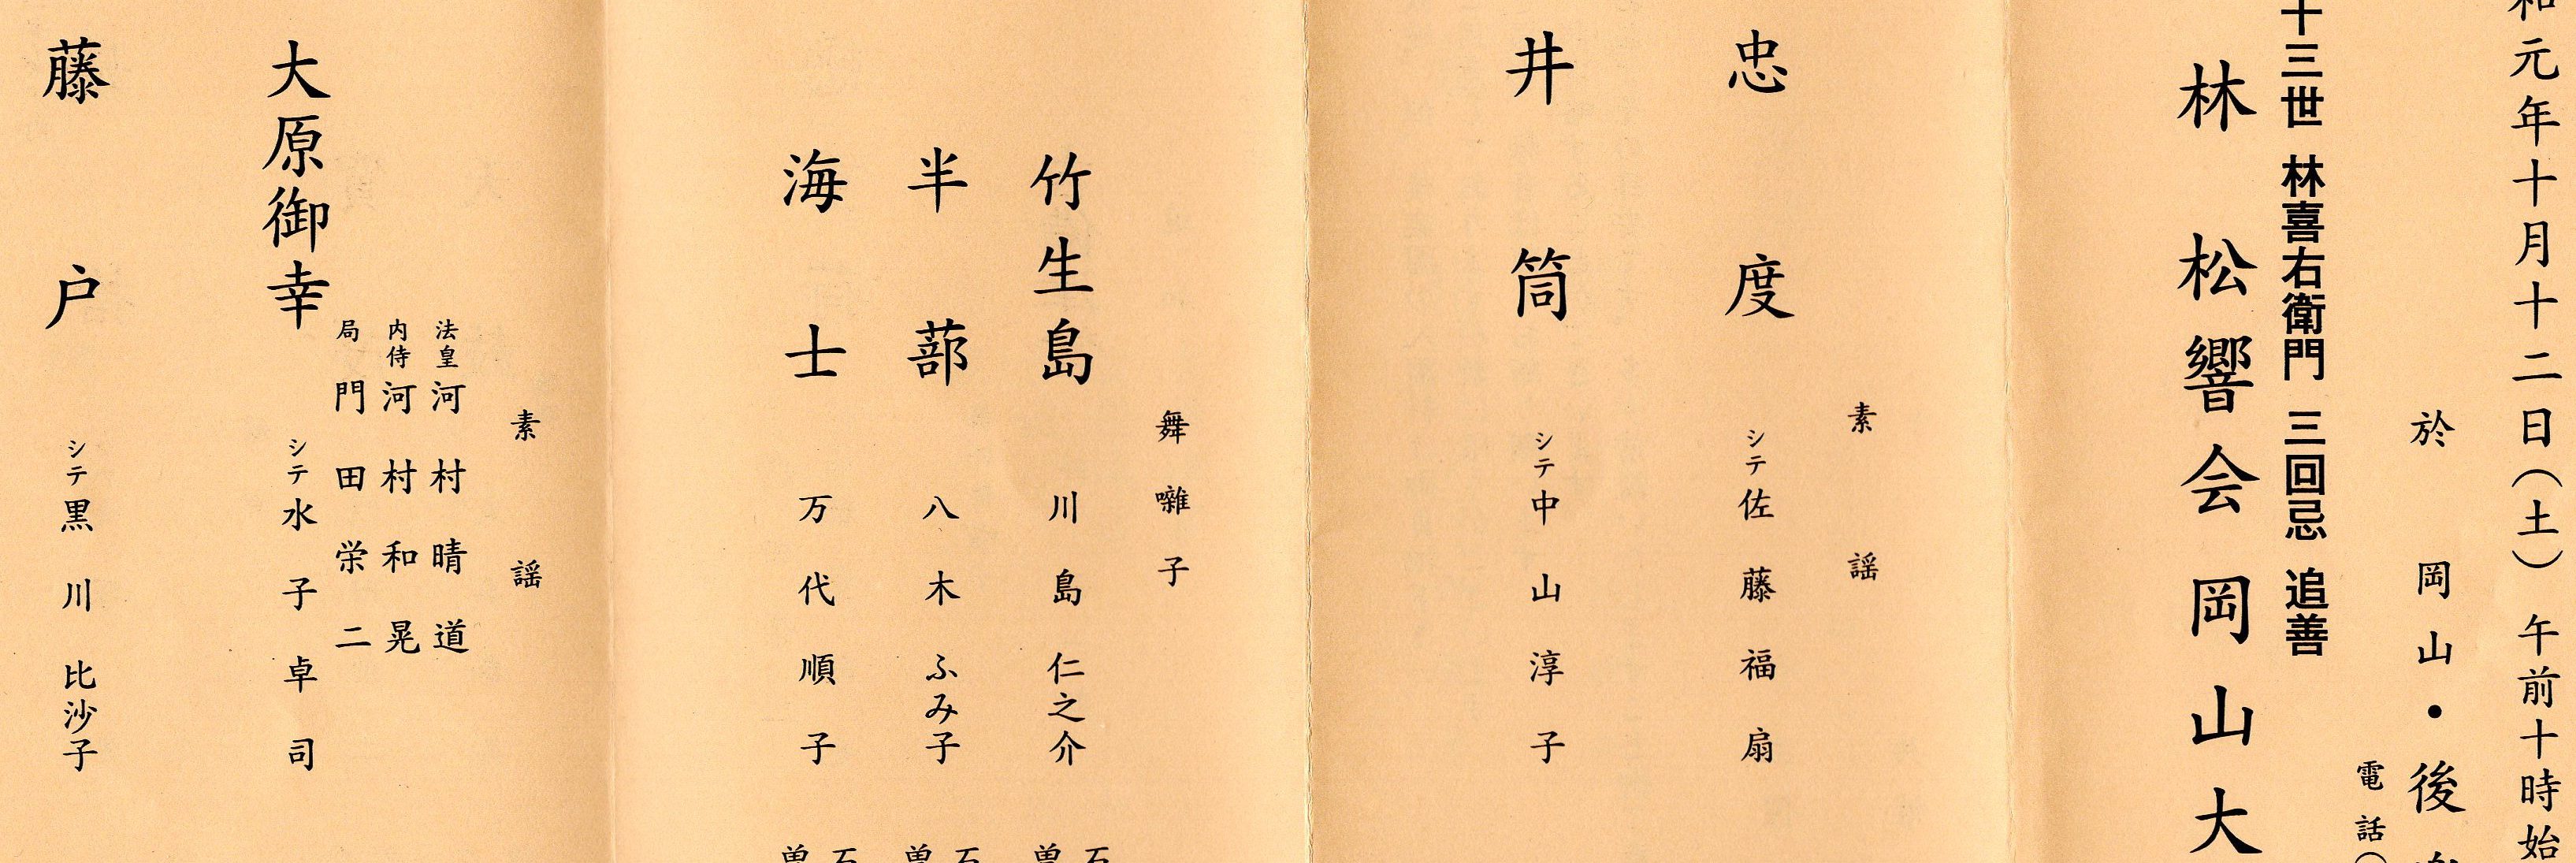 和元年十月十二日(土) 午前十時始
於 岡山・後楽
電話(
十三世 林喜右衛門 三回忌 追善
林 松響会岡山大
素謡
忠度 シテ 佐藤福扇
井筒 シテ 中山淳子
舞囃子
竹生島 川島仁之介
半蔀 八木ふみ子
海士 万代順子
素謡
法皇 河村晴道
内侍 河村和晃
局 門田栄二
大原御幸 シテ 水子卓司
藤戸 シテ 黒川比沙子